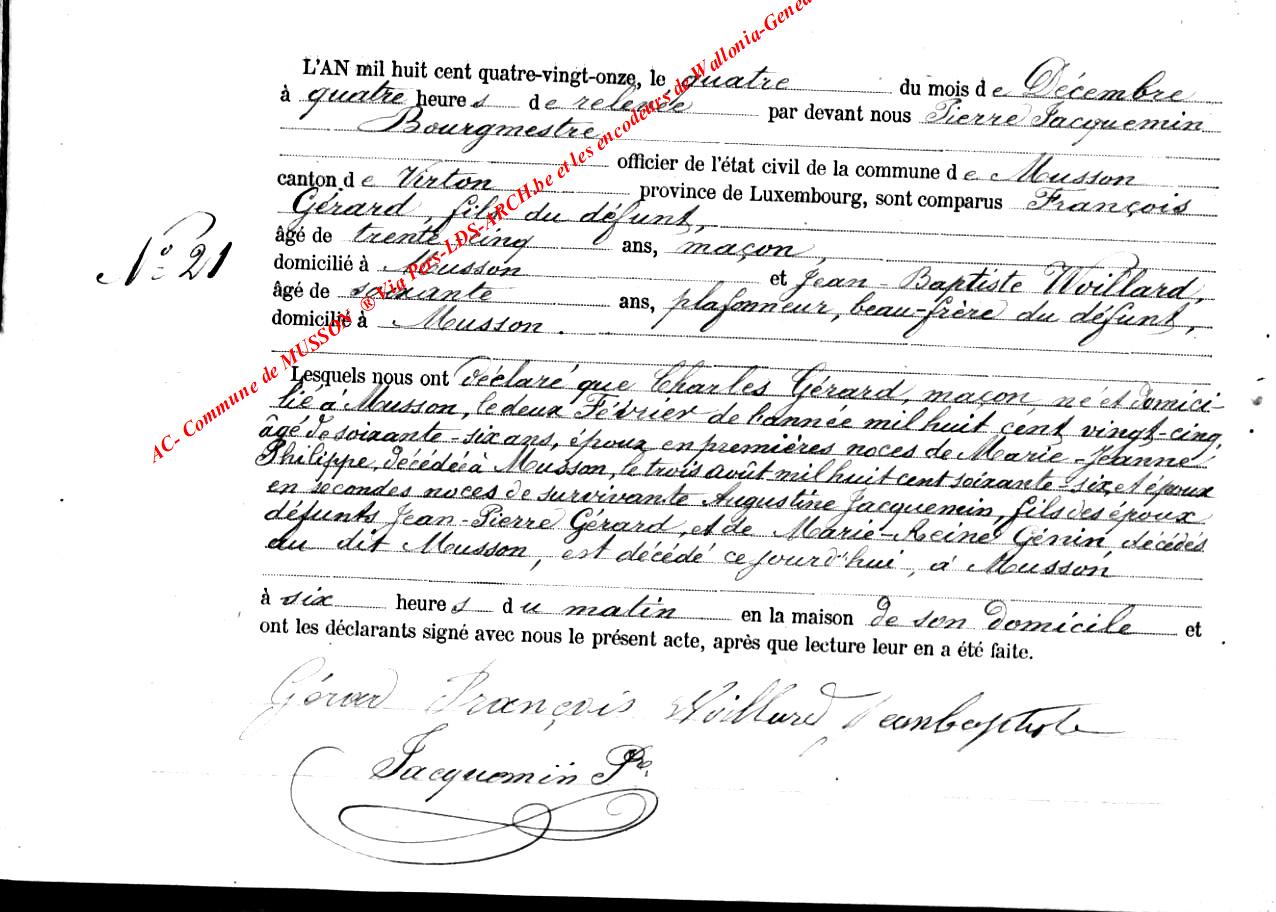 L'AN mil huit cent quatre-vingt-onze, le quatre du mois de Décembre
à quatre heures de relevée par devant nous Pierre Jacquemin
Bourgmestre
officier de l'état civil de la commune de Musson
canton de Virton province de Luxembourg, sont comparus François
Gérard, fils du défunt,
âgé de trente cinq ans, maçon,
N° 21
domicilié à Musson et Jean-Baptiste Woillard,
âgé de soixante ans, plafonneur, beau-frère du défunt,
domicilié à Musson.
Lesquels nous ont déclaré que Charles Gérard, maçon, né et domici-
lié à Musson, le deux Février de l'année mil huit cent vingt-cinq,
âgé de soixante-six ans, époux en premières noces de Marie-Jeanne
Philippe, décédée à Musson, le trois août mil huit cent soixante-six, et époux
en secondes noces de survivante Augustine Jacquemin, fils des époux
défunts Jean-Pierre Gérard, et de Marie-Reine Génin décédés
au dit Musson, est décédé ce jourd'hui, à Musson
à six heures du matin en la maison de son domicile et
ont les déclarants signé avec nous le présent acte, après que lecture leur en a été faite.
Gérard François Woillard Jeanbaptiste
Jacquemin Pre
AC- Commune de MUSSON ® Via Pers-LDS-ARCH.be et les encodeurs de Wallonia-Genea